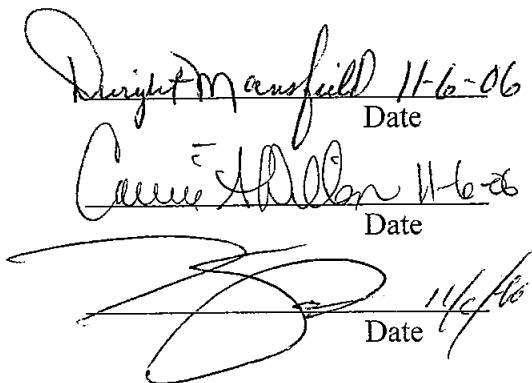 Dwight Mansfield 11-6-06
Date
Connie A Dillon 11-6-06
Date
11/6/06
Date